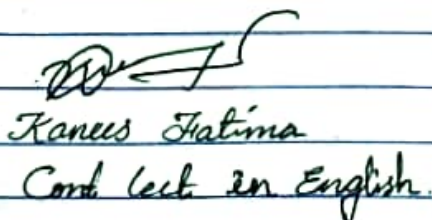 Kanees Fatima
Cont lect in English.